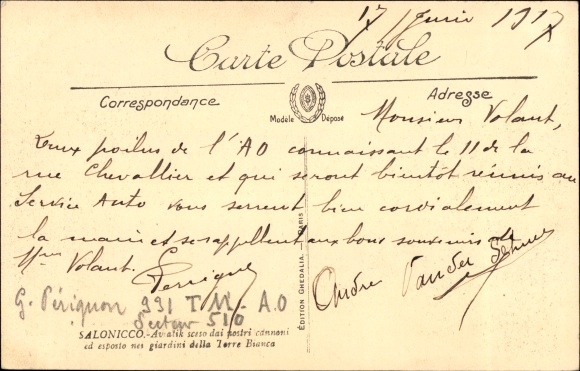 17 Juin 1917
Carte Postale
Correspondance
Adresse
Modèle Déposé
Monsieur Volant,
Deux poilus de l'AO connaissant le 11 de la
rue Chevallier et qui seront bientôt réunis au
Service Auto vous serrent bien cordialement
la main et se rappellent aux bons souvenirs de
Mme Volant.
Perignon
André Vander
G. Pérignon 931 T.M. - A.O
Secteur 510
SALONICCO.-Aviatik sceso dai nostri cannoni
ed esposto nei giardini della Torre Bianca
ÉDITION GHEDALIA. — PARIS